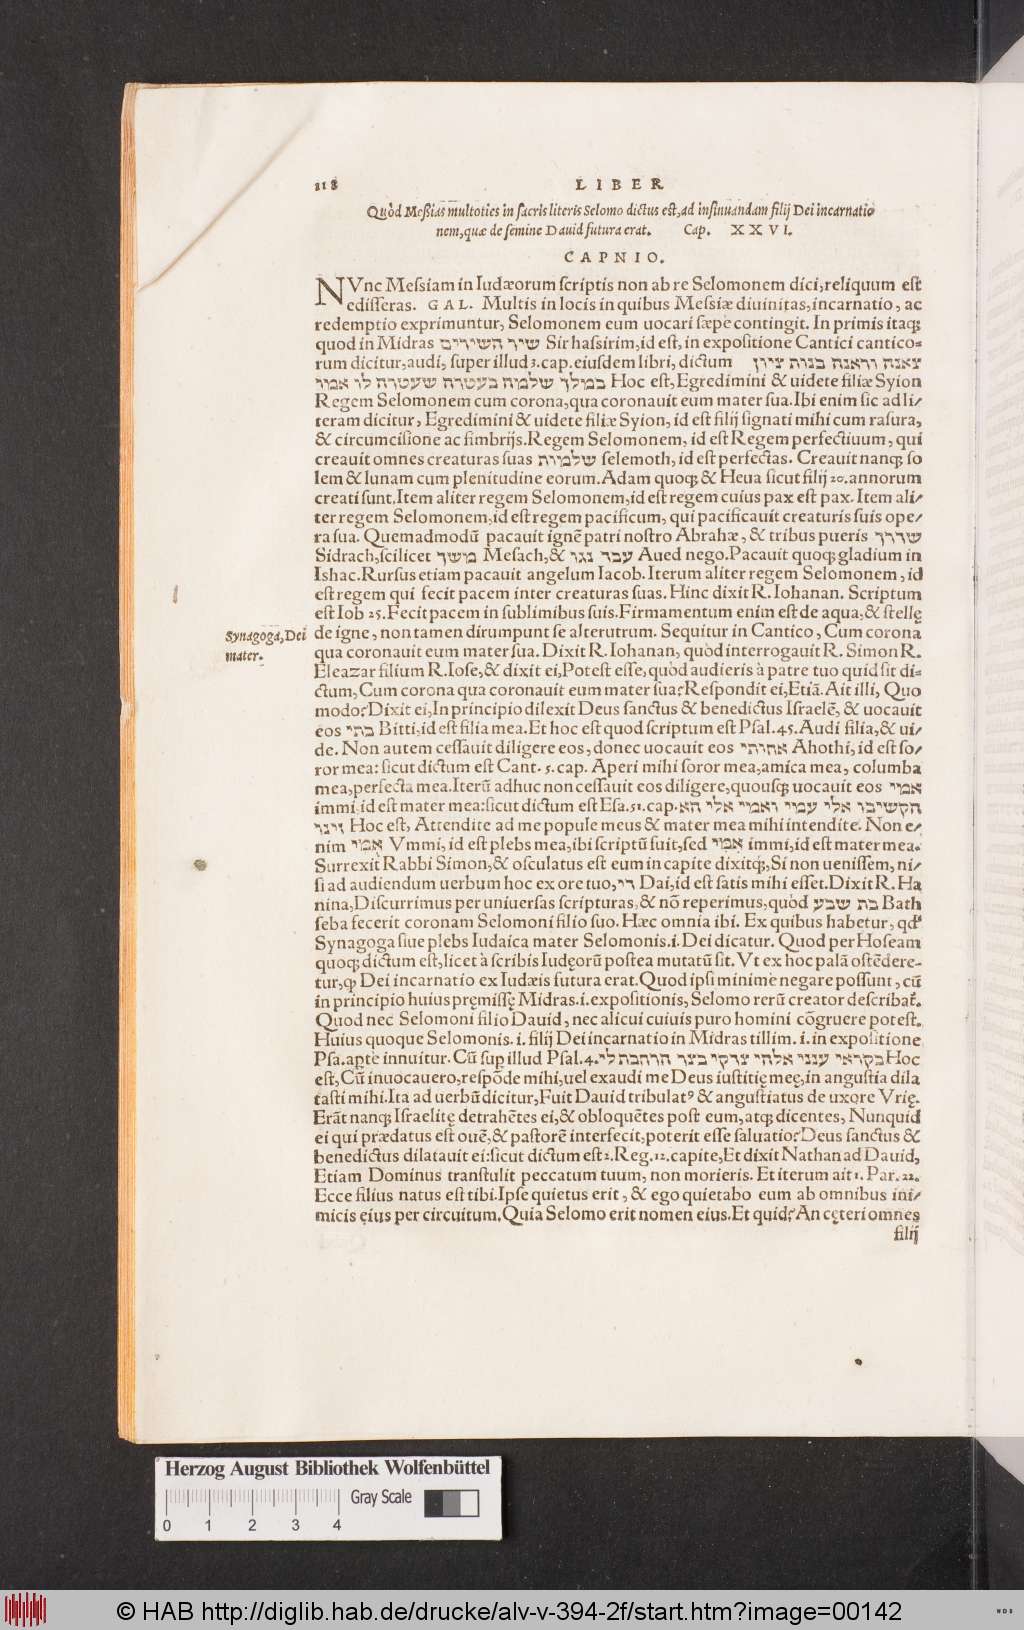 218 LIBER
Quòd Meßias multoties in sacris literis Selomo dictus est, ad insinuandam filij Dei incarnatio
nem, quæ de semine Dauid futura erat. Cap. XXVI.
CAPNIO.
NVnc Messiam in Iudæorum scriptis non ab re Selomonem dici, reliquum est
edisseras. GAL. Multis in locis in quibus Messiæ diuinitas, incarnatio, ac
redemptio exprimuntur, Selomonem eum uocari sæpe contingit. In primis itaq;
quod in Midras שיר השירים Sir hassirim, id est, in expositione Cantici cantico=
rum dicitur, audi, super illud 3. cap. eiusdem libri, dictum צאנה וראנה בנות ציון
במלך שלמה בעטרה שעטרה לו אמו Hoc est, Egredimini & uidete filiæ Syion
Regem Selomonem cum corona, qua coronauit eum mater sua. Ibi enim sic ad li/
teram dicitur, Egredimini & uidete filiæ Syion, id est filij signati mihi cum rasura,
& circumcisione ac fimbrijs. Regem Selomonem, id est Regem perfectiuum, qui
creauit omnes creaturas suas שלמות selemoth, id est perfectas. Creauit nanq; so
lem & lunam cum plenitudine eorum. Adam quoq; & Heua sicut filij 20. annorum
creati sunt. Item aliter regem Selomonem, id est regem cuius pax est pax. Item ali/
ter regem Selomonem, id est regem pacificum, qui pacificauit creaturis suis ope/
ra sua. Quemadmodũ pacauit ignẽ patri nostro Abrahæ, & tribus pueris שדרך
Sidrach, scilicet משך Mesach, & עבד נגו Aued nego. Pacauit quoq; gladium in
Ishac. Rursus etiam pacauit angelum Iacob. Iterum aliter regem Selomonem, id
est regem qui fecit pacem inter creaturas suas. Hinc dixit R. Iohanan. Scriptum
est Iob 25. Fecit pacem in sublimibus suis. Firmamentum enim est de aqua, & stellę
Synagoga, Dei
mater.
de igne, non tamen dirumpunt se alterutrum. Sequitur in Cantico, Cum corona
qua coronauit eum mater sua. Dixit R. Iohanan, quòd interrogauit R. Simon R.
Eleazar filium R. Iose, & dixit ei, Potest esse, quòd audieris à patre tuo quid sit di=
ctum, Cum corona qua coronauit eum mater sua? Respondit ei, Etiã. Ait illi, Quo
modo? Dixit ei, In principio dilexit Deus sanctus & benedictus Israelẽ, & uocauit
eos בתי Bitti, id est filia mea. Et hoc est quod scriptum est Psal. 45. Audi filia, & ui/
de. Non autem cessauit diligere eos, donec uocauit eos אחותי Ahothi, id est so/
ror mea: sicut dictum est Cant. 5. cap. Aperi mihi soror mea, amica mea, columba
mea, perfecta mea. Iterũ adhuc non cessauit eos diligere, quousq; uocauit eos אמי
immi, id est mater mea: sicut dictum est Esa. 51. cap. הקשיבו אלי עמי ואמי אלי הא
זינו Hoc est, Attendite ad me popule meus & mater mea mihi intendite. Non e/
nim אמי Vmmi, id est plebs mea, ibi scriptũ fuit, sed אמי immi, id est mater mea.
Surrexit Rabbi Simon, & osculatus est eum in capite dixitq́;, Si non uenissem, ni/
si ad audiendum uerbum hoc ex ore tuo, די Dai, id est satis mihi esset. Dixit R. Ha
nina, Discurrimus per uniuersas scripturas, & nõ reperimus, quòd בת שבע Bath
seba fecerit coronam Selomoni filio suo. Hæc omnia ibi. Ex quibus habetur, qd'
Synagoga siue plebs Iudaica mater Selomonis .i. Dei dicatur. Quod per Hoseam
quoq; dictum est, licet à scribis Iudęorũ postea mutatũ sit. Vt ex hoc palã ostẽdere-
tur, ꝙ Dei incarnatio ex Iudæis futura erat. Quod ipsi minimè negare possunt, cũ
in principio huius pręmissę Midras .i. expositionis, Selomo rerũ creator describat̃.
Quod nec Selomoni filio Dauid, nec alicui cuiuis puro homini cõgruere potest.
Huius quoque Selomonis .i. filij Dei incarnatio in Midras tillim .i. in expositione
Psa. apte innuitur. Cũ sup illud Psal. 4. בקראי ענני אלהי צדקי בצר הרחבת לי Hoc
est, Cũ inuocauero, respõde mihi, uel exaudi me Deus iustitię meę, in angustia dila
tasti mihi. Ita ad uerbũ dicitur, Fuit Dauid tribulatꝰ & angustiatus de uxore Vrię.
Erãt nanq; Israelitę detrahẽtes ei, & obloquẽtes post eum, atq; dicentes, Nunquid
ei qui prædatus est ouẽ, & pastorẽ interfecit, poterit esse saluatio? Deus sanctus &
benedictus dilatauit ei: sicut dictum est 2. Reg. 12. capite, Et dixit Nathan ad Dauid,
Etiam Dominus transtulit peccatum tuum, non morieris. Et iterum ait 1. Par. 22.
Ecce filius natus est tibi. Ipse quietus erit, & ego quietabo eum ab omnibus ini/
micis eius per circuitum. Quia Selomo erit nomen eius. Et quid? An cęteri omnes
filij
Herzog August Bibliothek Wolfenbüttel
Gray Scale
0 1 2 3 4
© HAB http://diglib.hab.de/drucke/alv-v-394-2f/start.htm?image=00142